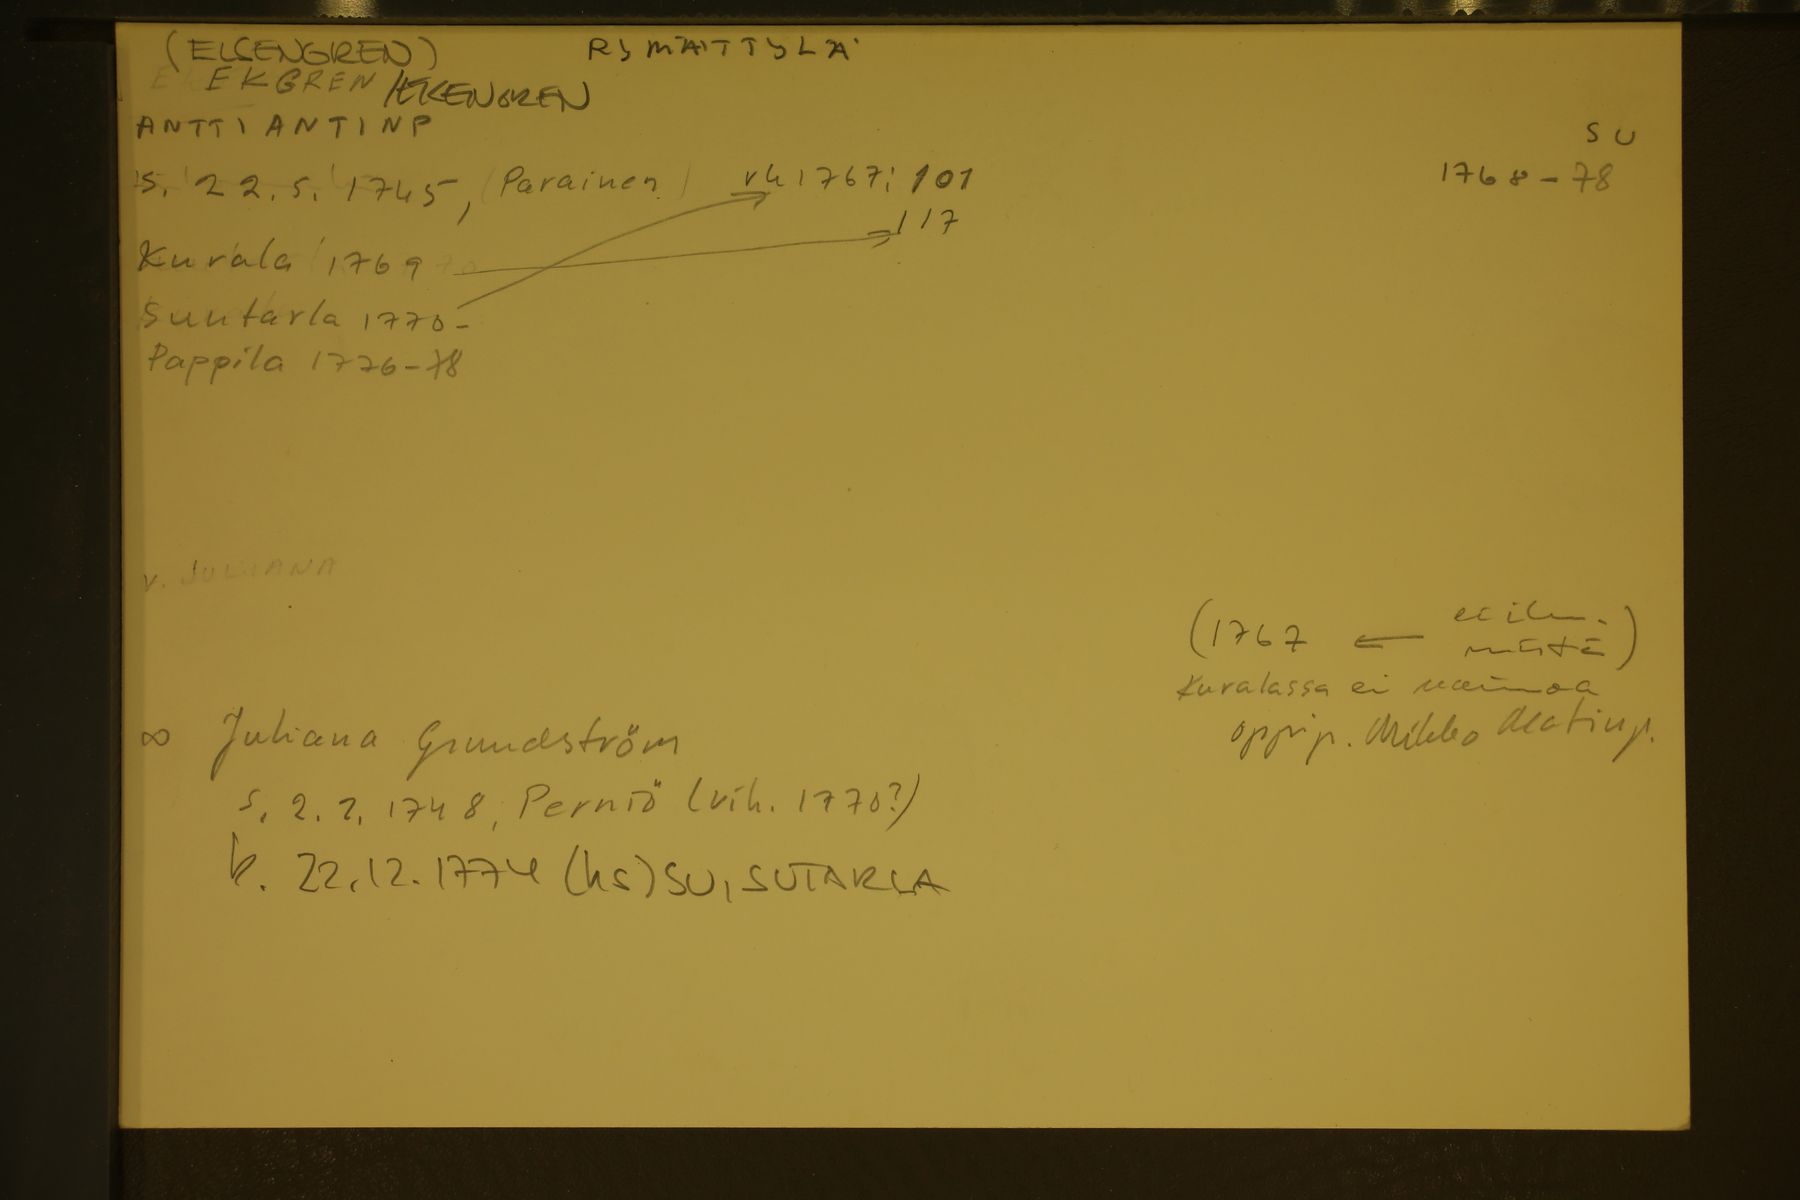 (ELSENGREN) RYMÄTTYLÄ
EKGREN / EKENGREN
ANTTI ANTINP
SU
s. 22.5. 1745, (Parainen) rk 1767: 101
1768-78
117
Kurala 1769
Suutarla 1770-
Pappila 1776-78
v. JULIANA
(1767 ← ei ilm. mistä)
Kuralassa ei vaimoa
oppip. Mikko Matinp.
∞ Juliana Grundström
s. 2.2. 1748, Perniö (vih. 1770?)
k. 22.12.1774 (hs) SU, SUTARLA